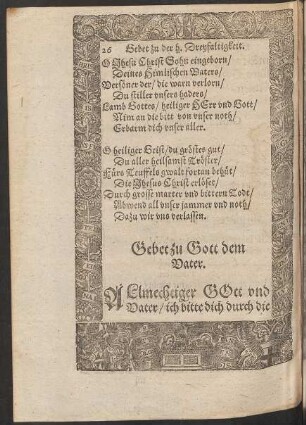 26 Gebet zu der h. Dreyfaltigkeit.
O Jhesu Christ Sohn eingeborn/
Deines Himlischen Vaters/
Versöner der/ die warn verlorn/
Du stiller vnsers haders/
Lamb Gottes/ heiliger HErr vnd Gott/
Nim an die bitt von vnser noth/
Erbarm dich vnser aller.
O heiliger Geist/ du gröstes gut/
Du aller heilsamst Tröster/
Fürs Teuffels gwalt fortan behüt/
Die Jhesus Christ erlöset/
Durch grosse marter vnd bittern Todt/
Abwend all vnser jammer vnd noth/
Dazu wir vns verlassen.
Gebet zu Gott dem
Vater.
ALlmechtiger GOtt vnd
Vater/ ich bitte dich durch die